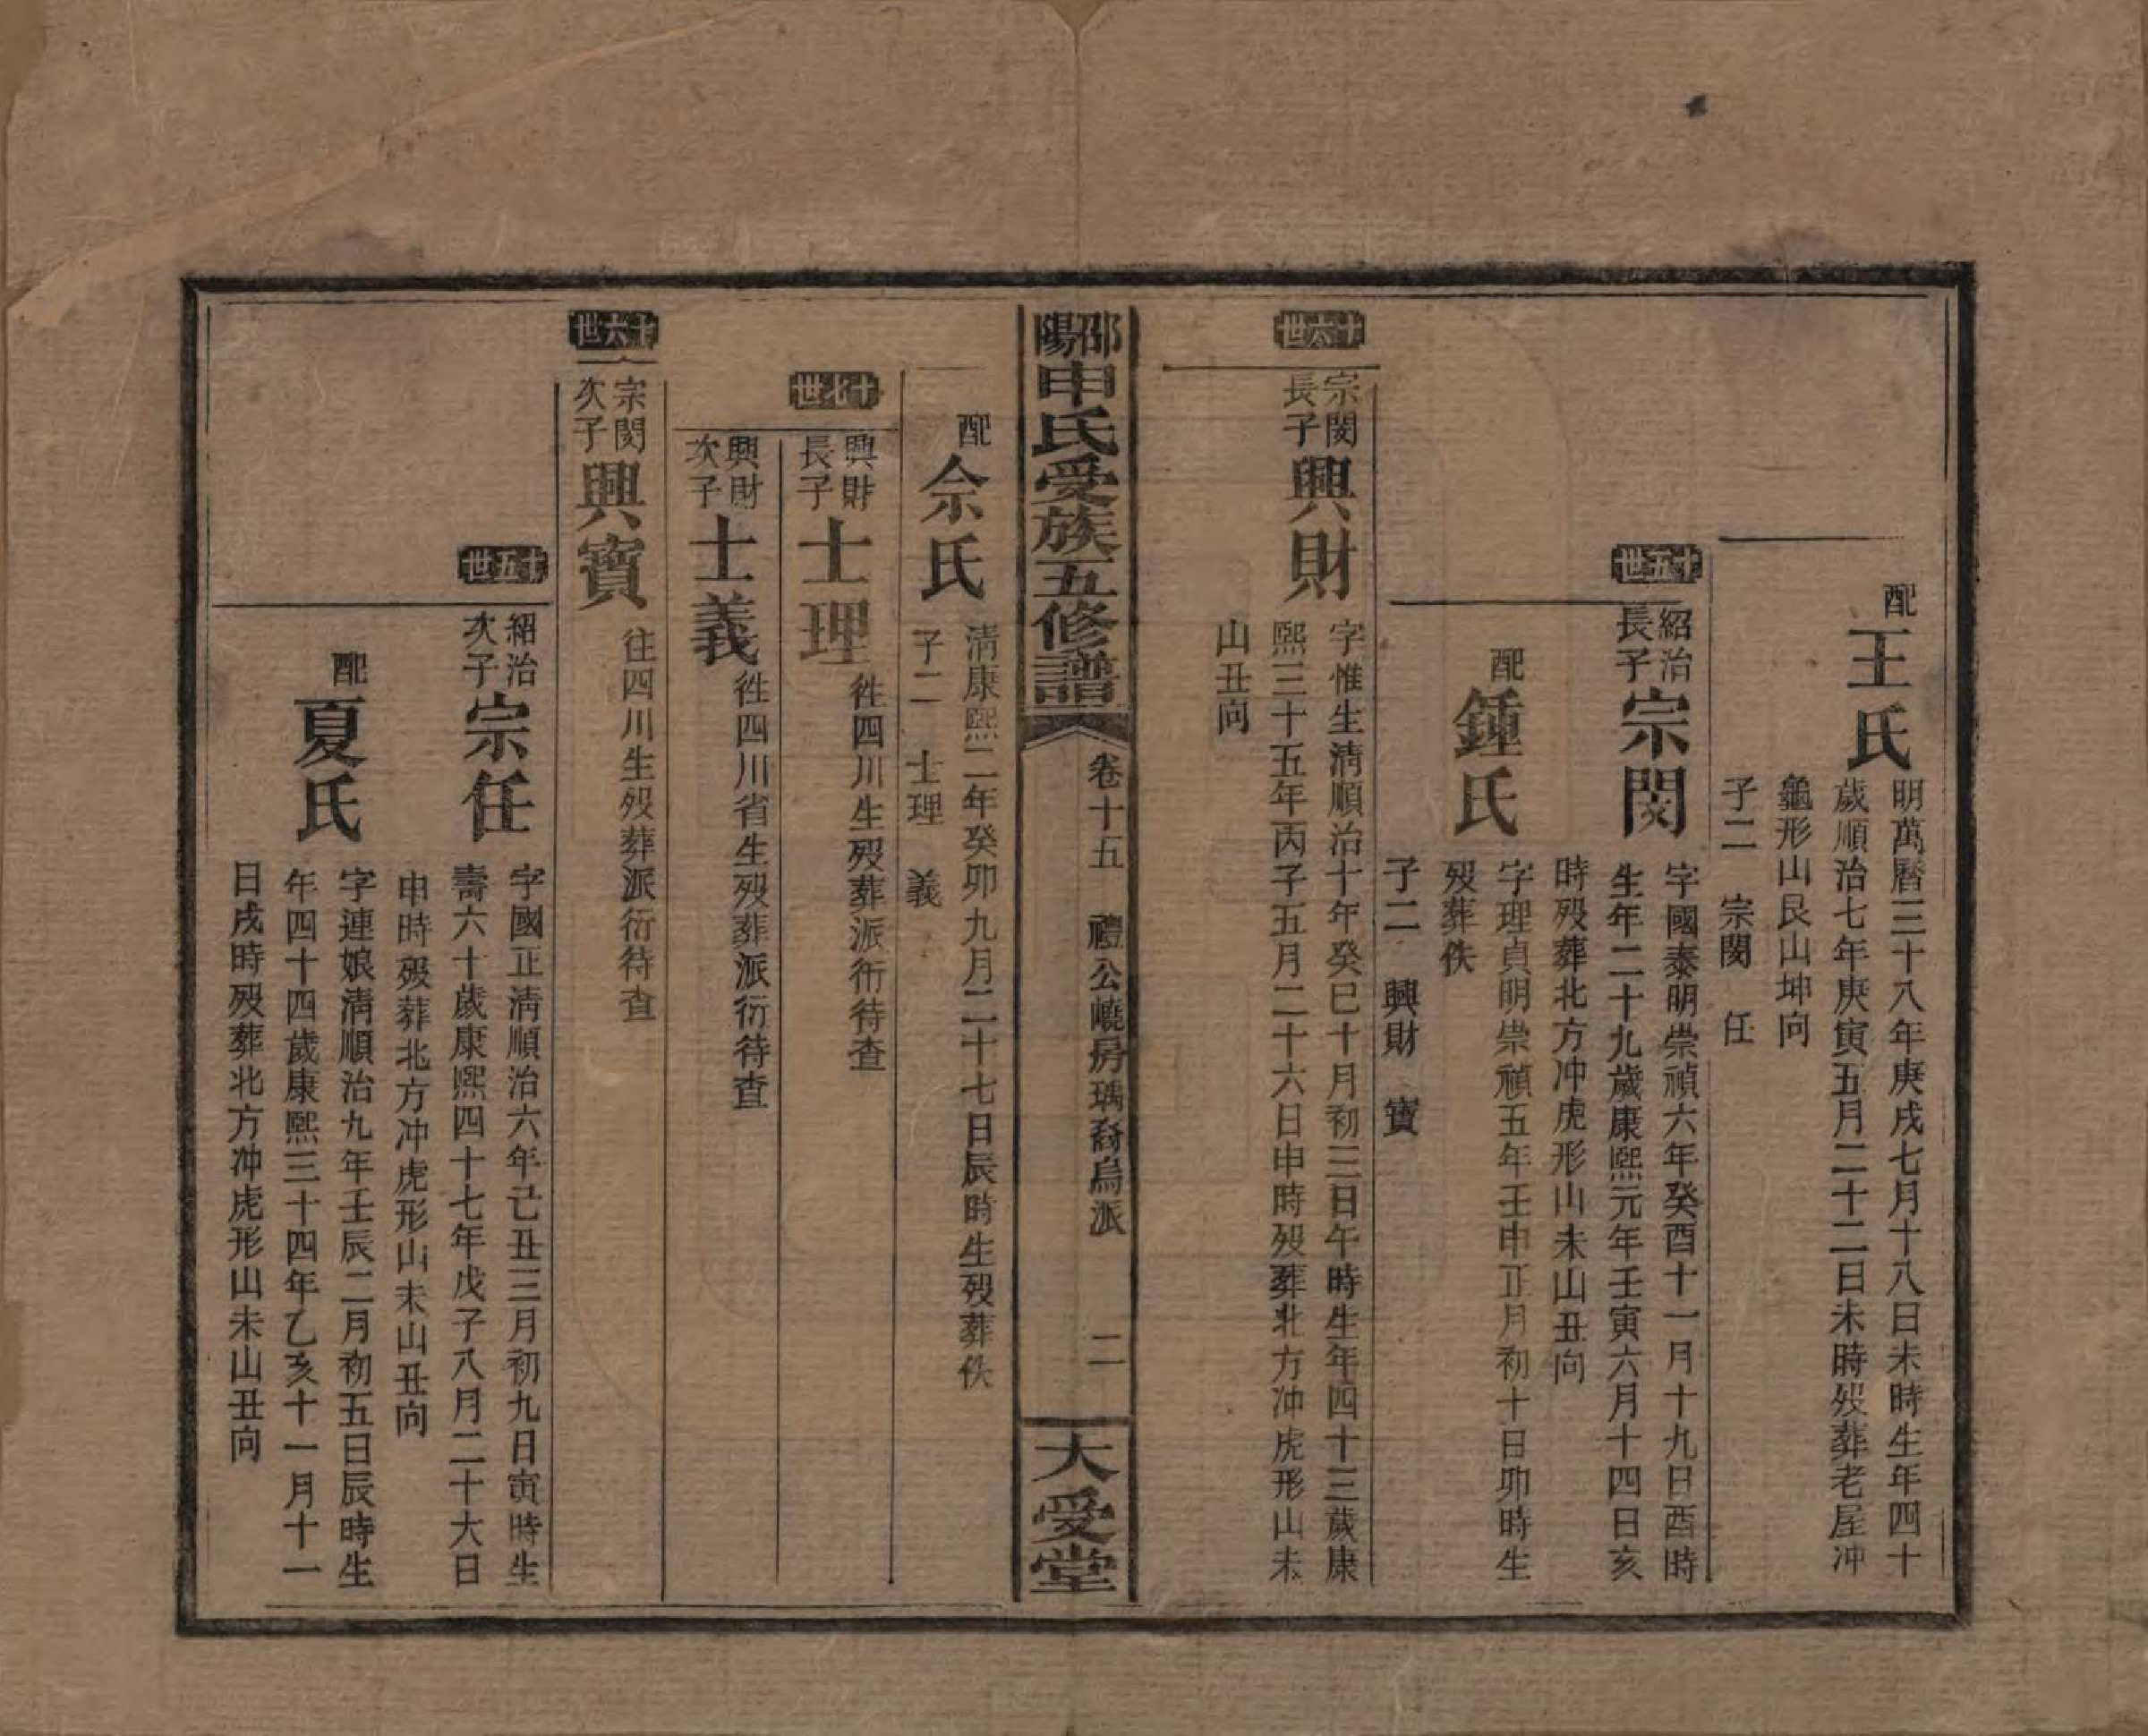 配
王氏
明萬曆三十八年庚戌七月十八日未時生年四十
歲順治七年庚寅五月二十二日未時歿葬老屋冲
龜形山艮山坤向
子二　宗閔　任
十五世
紹治
長子
宗閔
字國泰明崇禎六年癸酉十一月十九日酉時
生年二十九歲康熙元年壬寅六月十四日亥
時歿葬北方冲虎形山未山丑向
配
鍾氏
字理貞明崇禎五年壬申正月初十日卯時生
歿葬佚
子二　興財　寶
十六世
宗閔
長子
興財
字惟生清順治十年癸巳十月初三日午時生年四十三歲康
熙三十五年丙子五月二十六日申時歿葬北方冲虎形山未
山丑向
邵陽申氏受族五修譜
卷十五　禮公嶢房瑀裔烏派　二
大受堂
配
佘氏
清康熙二年癸卯九月二十七日辰時生歿葬佚
子二　士理　義
十七世
興財
長子
士理
徃四川生歿葬派衍待查
興財
次子
士義
徃四川省生歿葬派衍待查
十六世
宗閔
次子
興寶
往四川生歿葬派衍待查
十五世
紹治
次子
宗任
字國正清順治六年己丑三月初九日寅時生
壽六十歲康熙四十七年戊子八月二十六日
申時歿葬北方冲虎形山未山丑向
配
夏氏
字連娘清順治九年壬辰二月初五日辰時生
年四十四歲康熙三十四年乙亥十一月十一
日戌時歿葬北方冲虎形山未山丑向